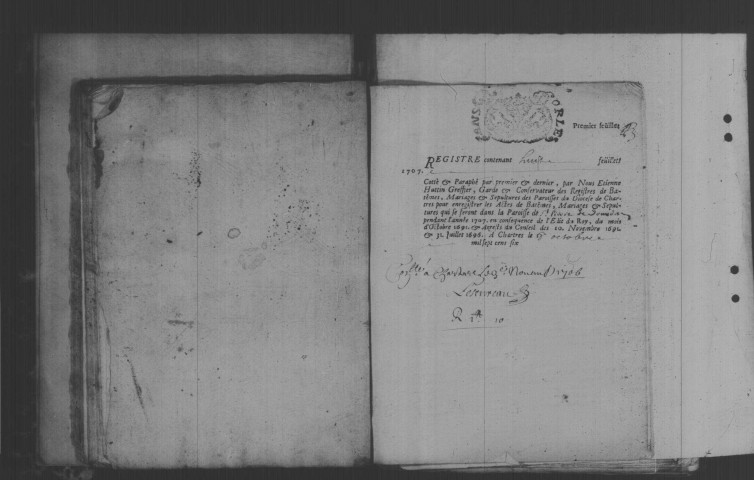 ORLE
Premier feüillet
REGISTRE contenant huit feüillets
1707.
Cotté & Paraphé par premier & dernier, par Nous Etienne
Huttin Greffier, Garde & Conservateur des Registres de Ba-
têmes, Mariages & Sepultures des Paroisses du Diocese de Char-
tres pour enregistrer les Actes de Batêmes, Mariages & Sepul-
tures qui se feront dans la Paroisse de St Pierre de
pendant l'année 1707. en consequence de l'Edit du Roy, du mois
d'Octobre 1691. & Arrests du Conseil des 20. Novembre 1692.
& 31. Juillet 1696. A Chartres le octobre
mil sept cens six
a Chartres le 1706
R 10